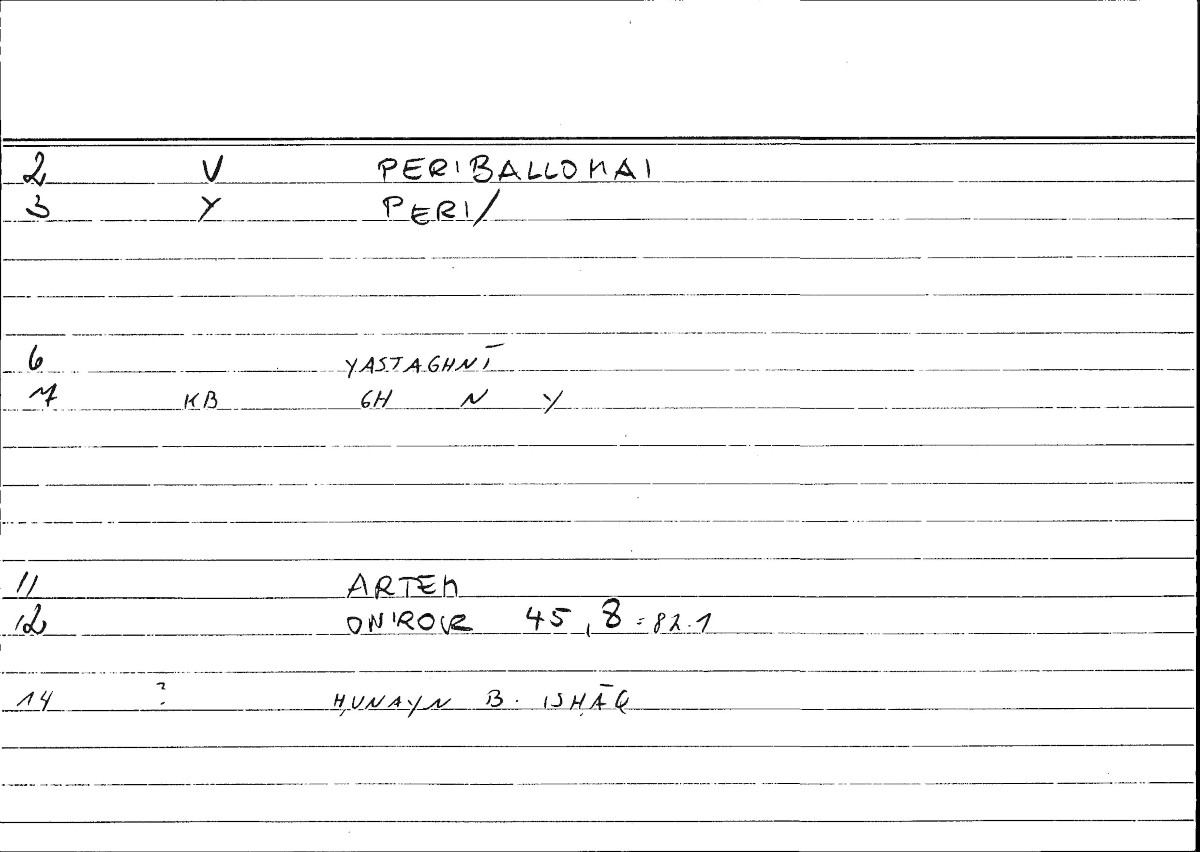 2 V PERIBALLOMAI
3 Y PERI/
6 YASTAGHNĪ
7 KB GH N Y
11 ARTEM
12 ONIROCR 45,8=82.1
14 ? ḤUNAYN B. ISḤĀQ